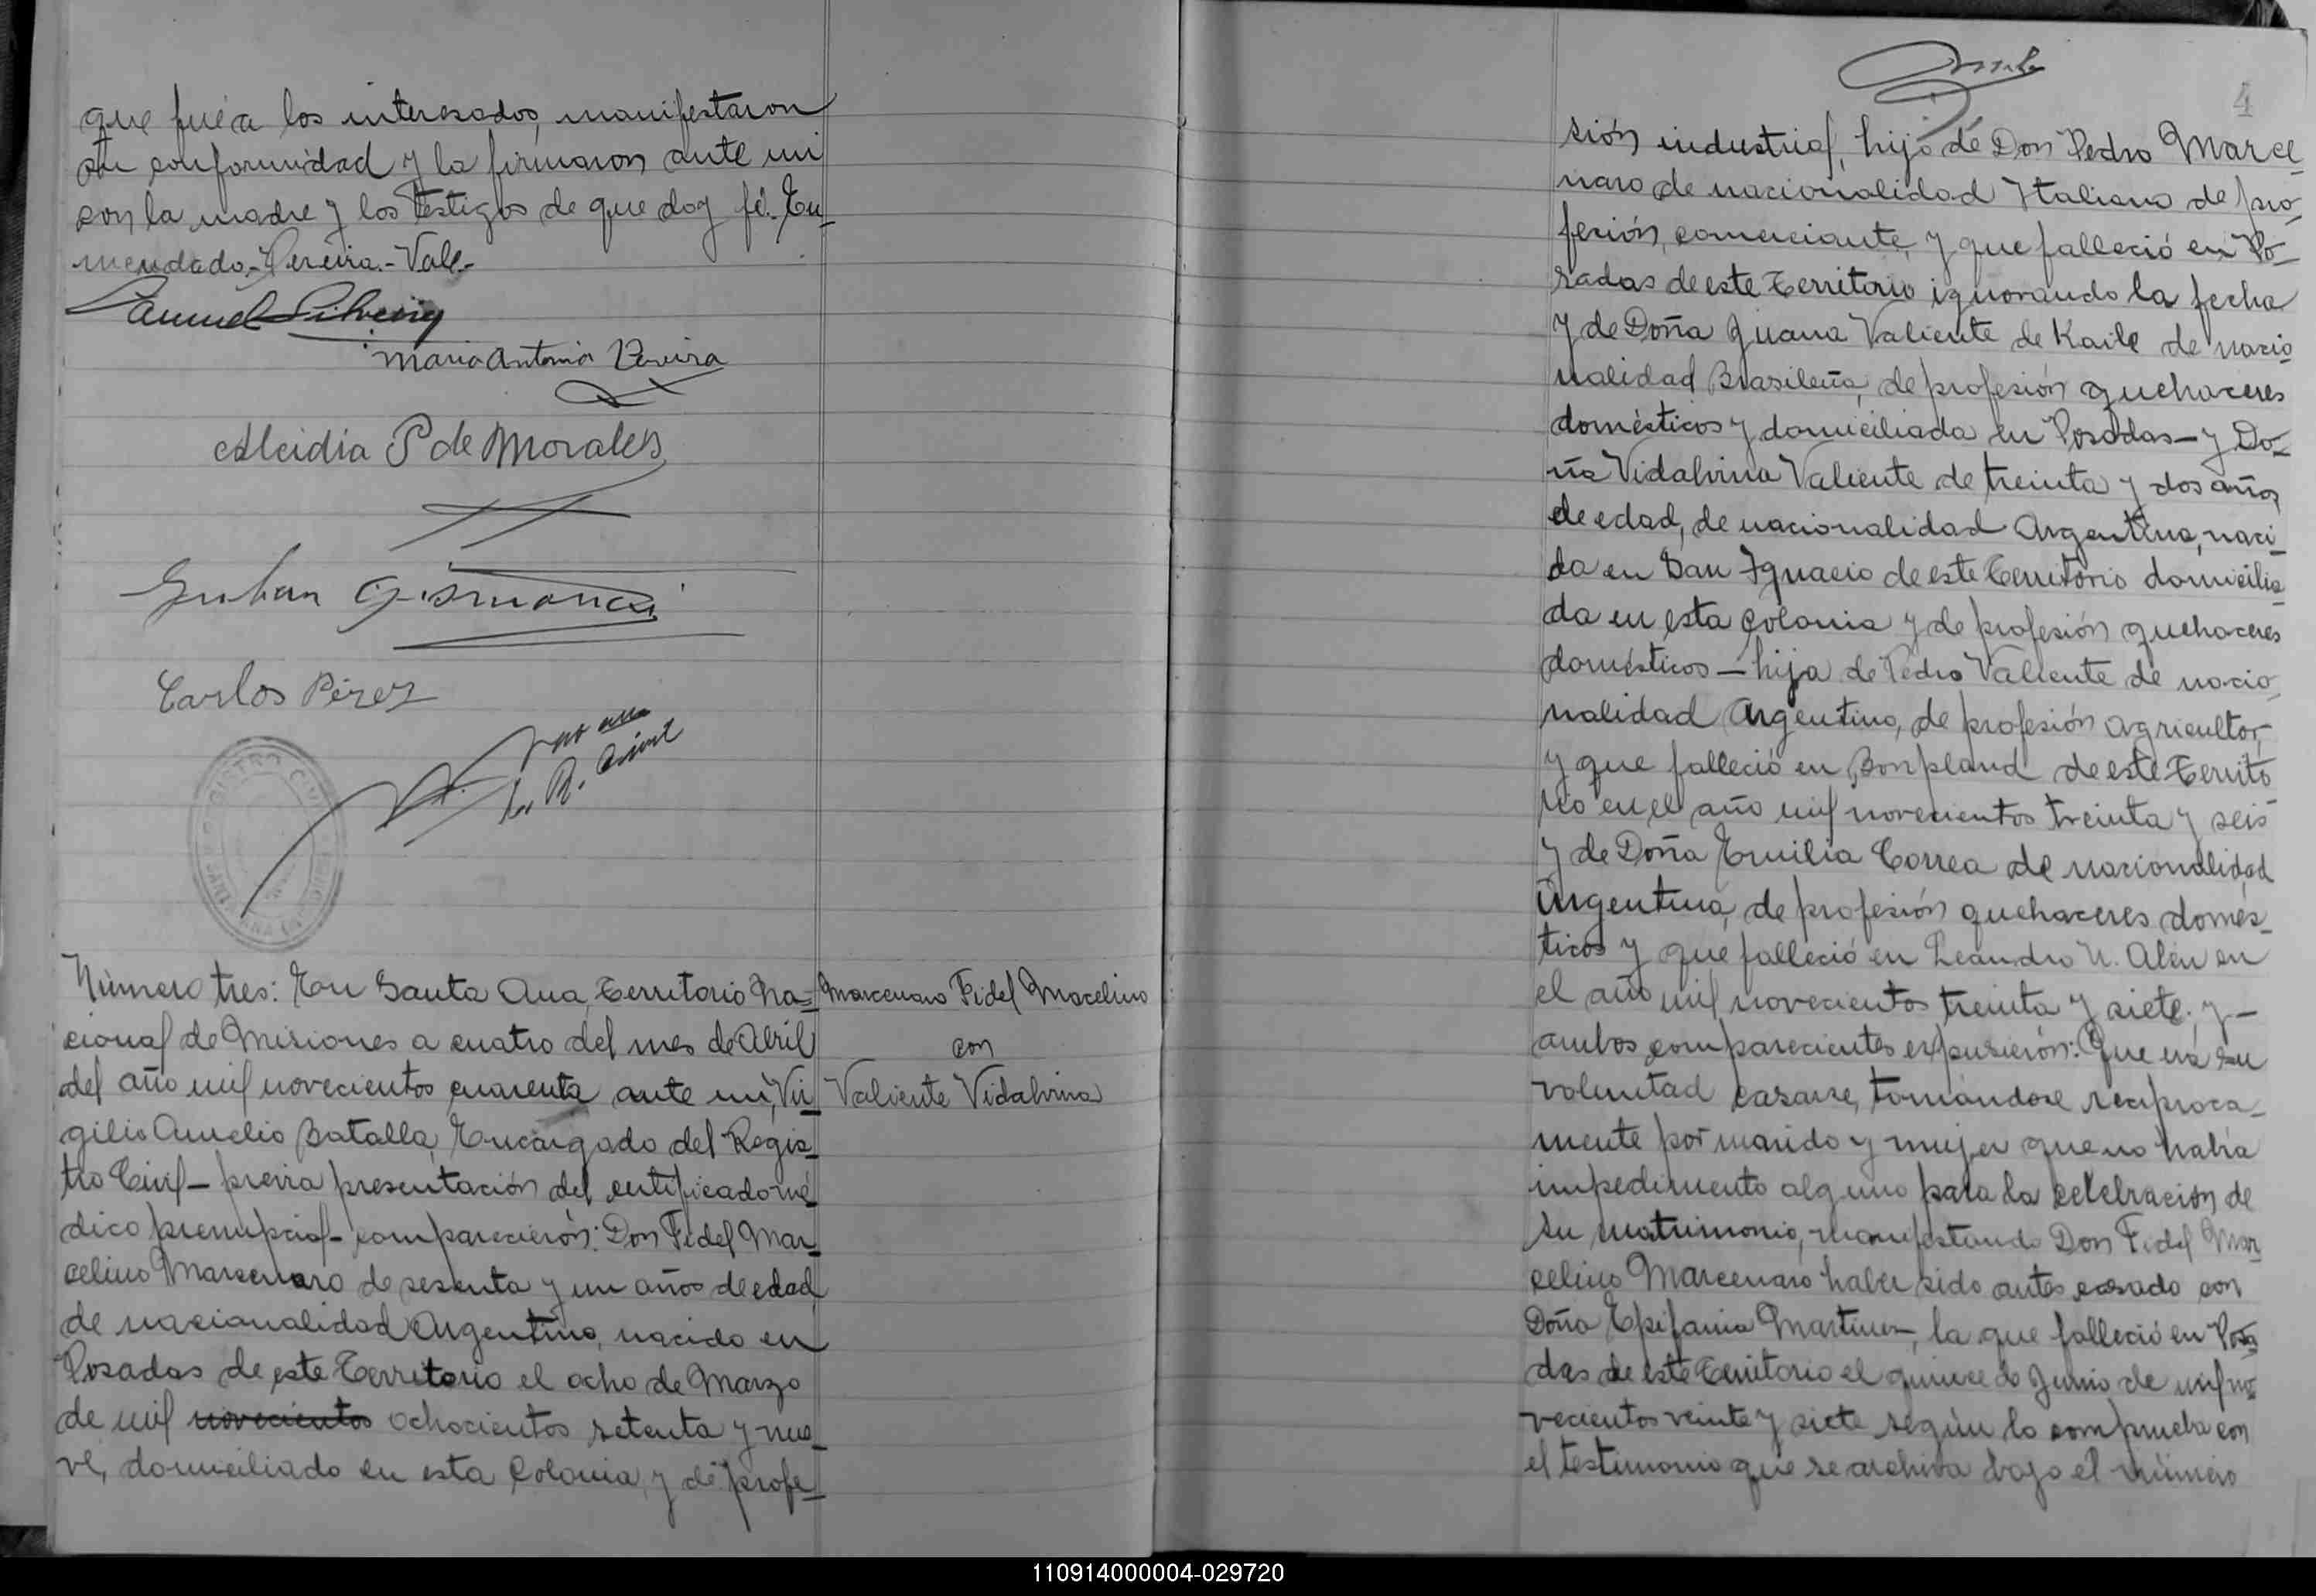 que fué a los interesados, manifestaron
su conformidad y la firmaron ante mi
con la madre y los testigos de que doy fé. En-
mendado.-Pereira.-Vale-
Samuel Silveira
Maria Antonia Pereira
Alcidia P de Morales
Carlos Pérez
REGISTRO CIVIL
SANTA ANA
Número tres: En Santa Ana, Territorio Na-
cional de Misiones a cuatro del mes de Abril
del año mil novecientos cuarenta ante mi, Vir
gilio Aurelio Batalla, Encargado del Regis-
tro Civil – previa presentación del certificado mé
dico prenupcial – comparecieron: Don Fidel Mar-
celino Marcenaro de sesenta y un años de edad
de nacionalidad Argentino, nacido en
Posadas de este Territorio el ocho de Marzo
de mil novecientos ochocientos setenta y nue-
ve, domiciliado en esta Colonia, y de profe-
Marcenaro Fidel Marcelino
con
Valiente Vidalvina
4
sión industrial, hijo de Don Pedro Marce-
naro de nacionalidad Italiano de pro-
fesión, comerciante, y que falleció en Po-
sadas de este Territorio ignorando la fecha
y de Doña Juana Valiente de Kaile de nacio
nalidad Brasileña, de profesión quehaceres
domésticos y domiciliada en Posadas – y Do-
ña Vidalvina Valiente de treinta y dos años
de edad, de nacionalidad Argentina, naci-
da en San Ignacio de este Territorio domicilia-
da en esta Colonia y de profesión quehaceres
domésticos – hija de Pedro Valiente de nacio-
nalidad Argentino, de profesión agricultor,
y que falleció en Bonpland de este Territo
rio en el año mil novecientos treinta y seis
y de Doña Emilia Correa de nacionalidad
Argentina, de profesión quehaceres domés-
ticos y que falleció en Leandro N. Alen en
el año mil novecientos treinta y siete; y –
ambos comparecientes expusieron: Que era su
voluntad casarse, tomándose reciproca-
mente por marido y mujer que no había
impedimento alguno para la celebración de
su matrimonio, manifestando Don Fidel Mar
celino Marcenaro haber sido antes casado con
Doña Epifania Martinez, la que falleció en Posa
das de este Territorio el quince de Junio de mil no-
vecientos veinte y siete según lo comprueba con
el testimonio que se archiva bajo el número
110914000004-029720